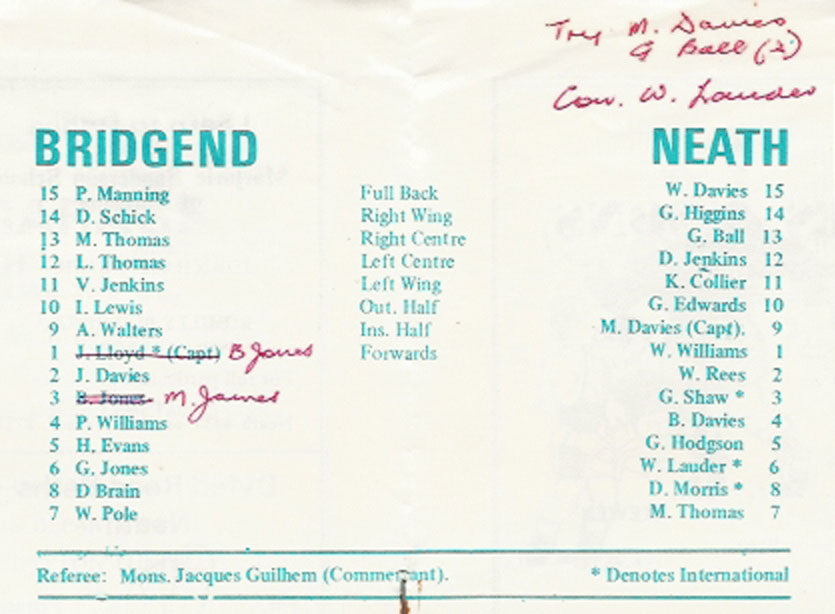 Try M. Davies
G Ball (2)
Con. W. Lauder
BRIDGEND NEATH
15 P. Manning Full Back W. Davies 15
14 D. Schick Right Wing G. Higgins 14
13 M. Thomas Right Centre G. Ball 13
12 L. Thomas Left Centre D. Jenkins 12
11 V. Jenkins Left Wing K. Collier 11
10 I. Lewis Out. Half G. Edwards 10
9 A. Walters Ins. Half M. Davies (Capt). 9
1 J. Lloyd * (Capt) B Jones Forwards W. Williams 1
2 J. Davies W. Rees 2
3 B. Jones M. James G. Shaw * 3
4 P. Williams B. Davies 4
5 H. Evans G. Hodgson 5
6 G. Jones W. Lauder * 6
8 D Brain D. Morris * 8
7 W. Pole M. Thomas 7
Referee: Mons. Jacques Guilhem (Commerçant). * Denotes International